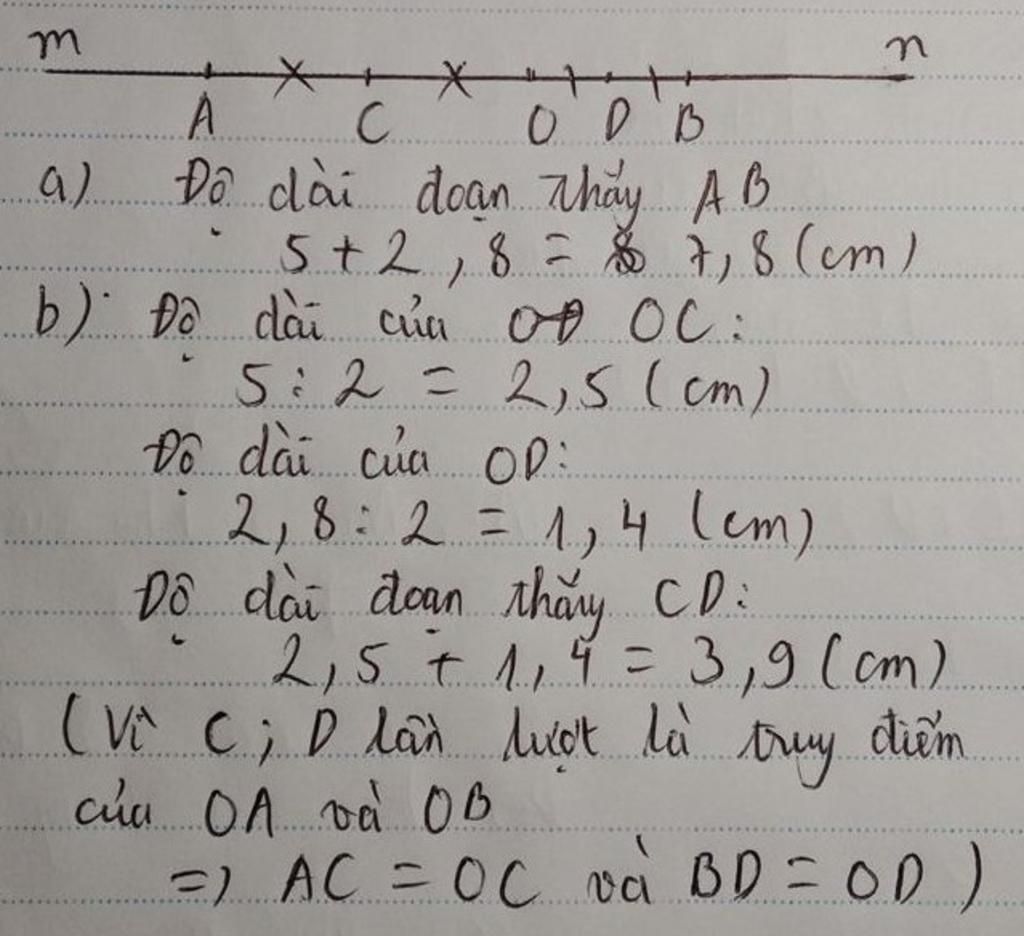 m n
A C O D B
a) Độ dài đoạn thẳng AB
5 + 2,8 = 7,8 (cm)
b) Độ dài của OC:
5 : 2 = 2,5 (cm)
Độ dài của OD:
2,8 : 2 = 1,4 (cm)
Độ dài đoạn thẳng CD:
2,5 + 1,4 = 3,9 (cm)
(Vì C; D lần lượt là trung điểm
của OA và OB
=> AC = OC và BD = OD)